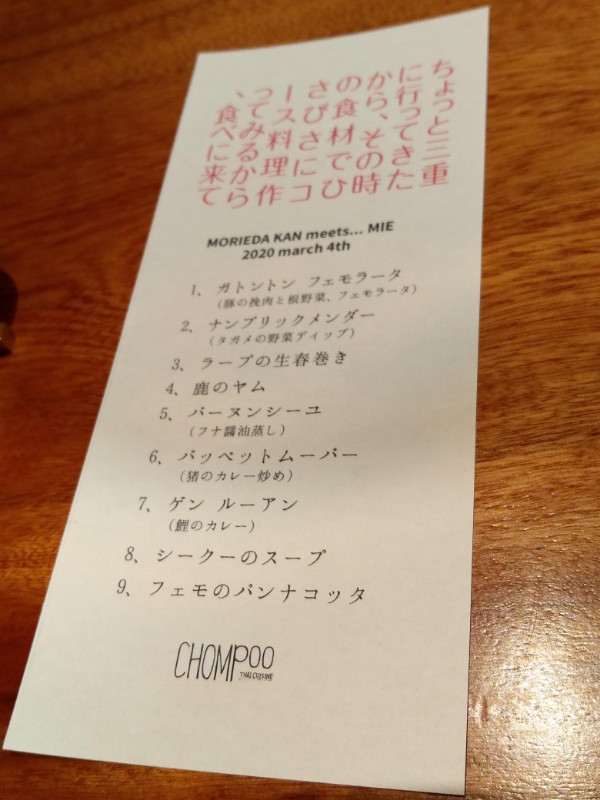 ちょっと三重
に行ってきた
から、その時
の食材でひ
さびさにコ
ース料理作
ってみるから
、食べに来て
MORIEDA KAN meets... MIE
2020 march 4th
1、ガトントン フェモラータ
(豚の挽肉と根野菜、フェモラータ)
2、ナンプリックメンダー
(タガメの野菜ディップ)
3、ラープの生春巻き
4、鹿のヤム
5、パーヌンシーユ
(フナ醤油蒸し)
6、パッペットムーパー
(猪のカレー炒め)
7、ゲン ルーアン
(鯉のカレー)
8、シークーのスープ
9、フェモのパンナコッタ
CHOMPOO
THAI CUISINE